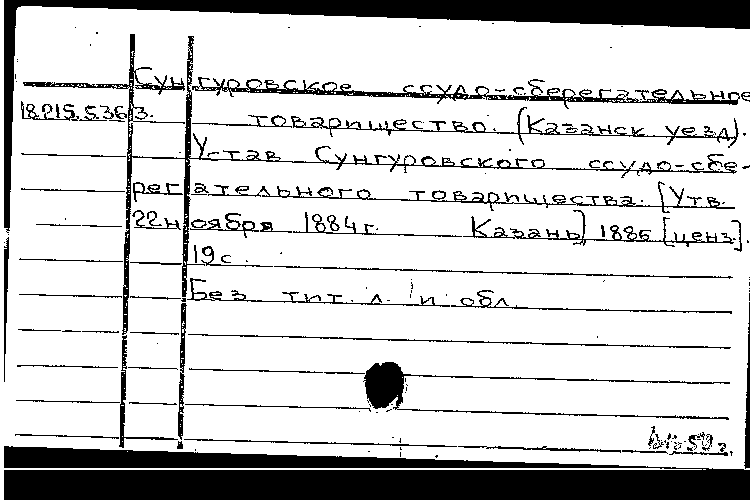 Сунгуровское ссудо-сберегательное
18.215.5.363. товарищество. (Казанск уезд).
Устав Сунгуровского ссудо-сбе-
регательного товарищества. [Утв.
22 ноября 1884 г. Казань], 1885 [ценз].
19 с.
Без тит. л. и обл.